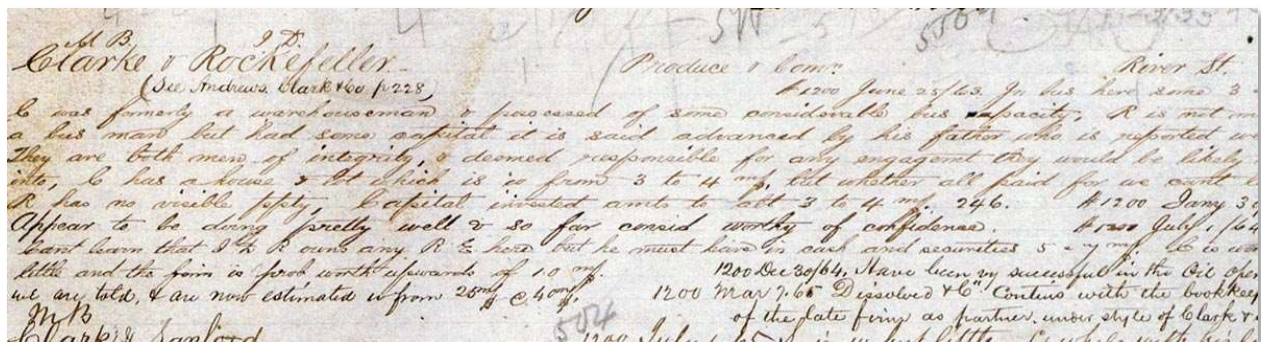 M B. J. D.
Clarke & Rockefeller Produce & Comn. River St.
(See Andrews, Clark & Co p 228)
#1200 June 25/63. In bus here some 3
C was formerly a warehouseman & possessed of some considerable bus capacity, R is not m
a bus man but had some capital it is said advanced by his father who is reported w
They are both men of integrity, & deemed responsible for any engagemt they would be likely
into, C has a house & lot which is wo from 3 to 4 m$, but whether all paid for we cant
R has no visible ppty, Capital invested amts to abt 3 to 4 m$. 246. #1200 Jany 3
Appear to be doing pretty well & so far consid worthy of confidence. #1200 July 1/64
Cant learn that J D R owns any R E here but he must have in cash and securities 5 - 7 m$ C is wo
little and the firm is prob worth upwards of 10 m$. 1200 Dec 30/64. Have been vy successful in the Oil ope
we are told, & are now estimated w from 25m$ @ 40m$, 1200 Mar 7. 65 Dissolved & "C" Contins with the bookkee
of the late firm as partner. under style of Clark &
M B
504
Clark & Sanford 1200 July 65 little